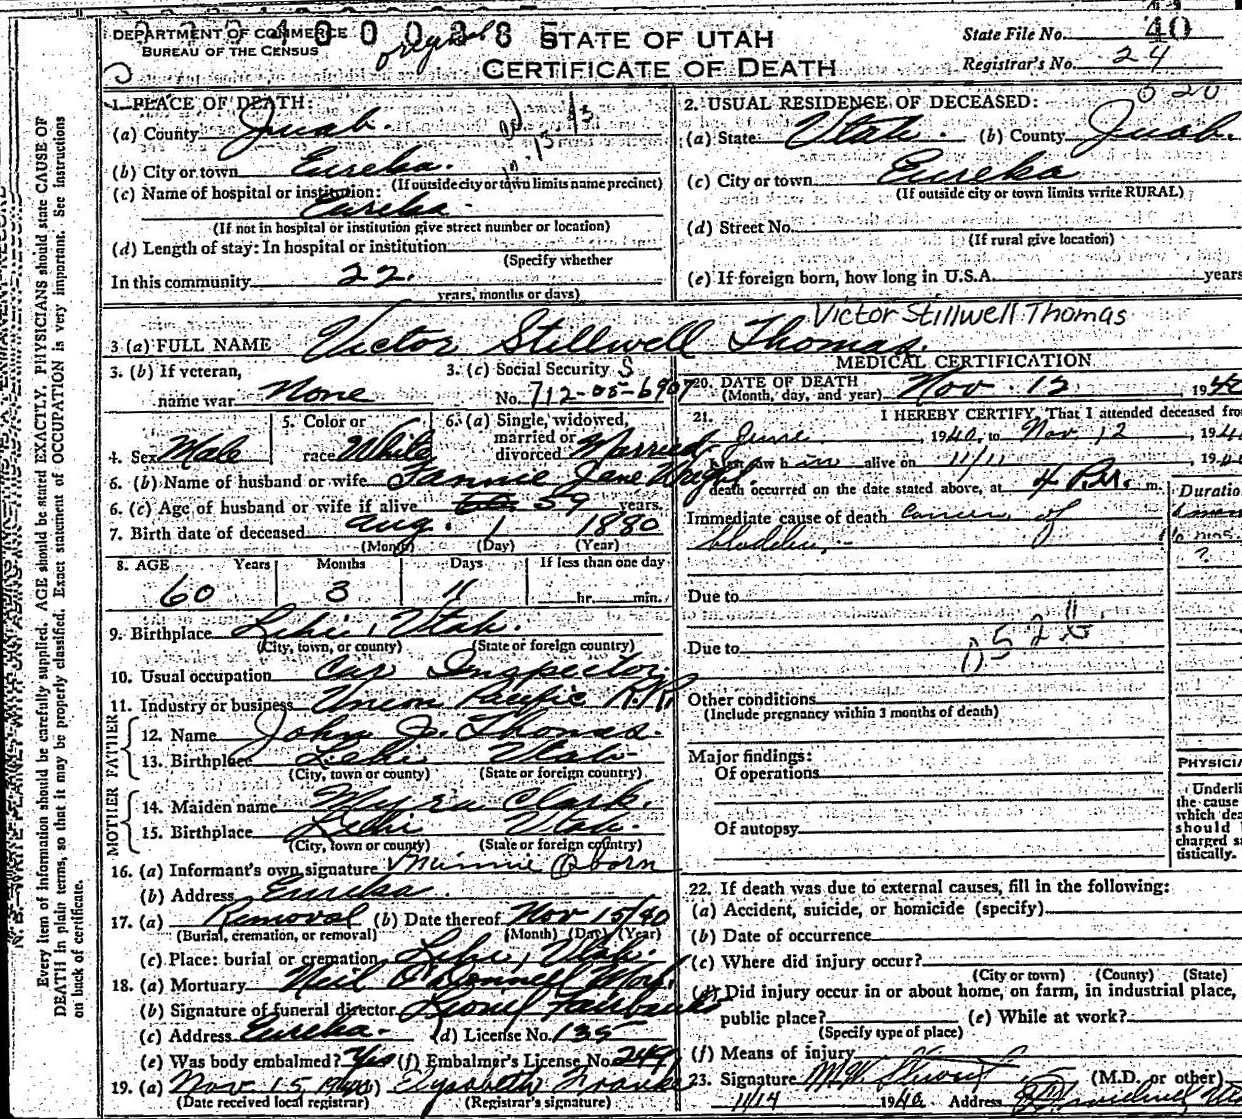 DEPARTMENT OF COMMERCE
BUREAU OF THE CENSUS
original
STATE OF UTAH
CERTIFICATE OF DEATH
State File No. 40
Registrar's No. 24
Every item of information should be carefully supplied. AGE should be stated EXACTLY. PHYSICIANS should state CAUSE OF
DEATH in plain terms, so that it may be properly classified. Exact statement of OCCUPATION is very important. See instructions
on back of certificate.
1. PLACE OF DEATH:
(a) County Juab.
(b) City or town Eureka.
(If outside city or town limits name precinct)
(c) Name of hospital or institution:
Eureka.
(If not in hospital or institution give street number or location)
(d) Length of stay: In hospital or institution
(Specify whether
In this community 22.
years, months or days)
2. USUAL RESIDENCE OF DECEASED:
(a) State Utah. (b) County Juab.
(c) City or town Eureka
(If outside city or town limits write RURAL)
(d) Street No.
(If rural give location)
(e) If foreign born, how long in U.S.A. years
Victor Stillwell Thomas
3 (a) FULL NAME Victor Stillwell Thomas.
3. (b) If veteran,
name war None
3. (c) Social Security
No. 712-05-6907
4. Sex Male
5. Color or
race White
6. (a) Single, widowed,
married or
divorced Married
6. (b) Name of husband or wife Fannie Jane Wright.
6. (c) Age of husband or wife if alive 59 years.
7. Birth date of deceased Aug. 1 1880
(Month) (Day) (Year)
8. AGE Years Months Days If less than one day
60 3 11 hr. min.
9. Birthplace Lehi, Utah.
(City, town, or county) (State or foreign country)
10. Usual occupation Car Inspector.
11. Industry or business Union Pacific R.R.
FATHER
12. Name John J. Thomas.
13. Birthplace Lehi Utah
(City, town or county) (State or foreign country)
MOTHER
14. Maiden name Myria Clark.
15. Birthplace Lehi Utah.
(City, town or county) (State or foreign country)
16. (a) Informant's own signature Minnie Oborn
(b) Address Eureka
17. (a) Removal (b) Date thereof Nov 15/40
(Burial, cremation, or removal) (Month) (Day) (Year)
(c) Place: burial or cremation Lehi, Utah.
18. (a) Mortuary Neil O'Donnell
(b) Signature of funeral director Lionel Fairbanks
(c) Address Eureka. (d) License No. 135
(e) Was body embalmed? Yes (f) Embalmer's License No. 249
19. (a) Nov 15 1940 (b) Elysabeth Franks
(Date received local registrar) (Registrar's signature)
MEDICAL CERTIFICATION
20. DATE OF DEATH
(Month, day, and year) Nov. 12 1940
21. I HEREBY CERTIFY, That I attended deceased from
June, 1940, to Nov 12, 194
I last saw him alive on 11/11, 19
death occurred on the date stated above, at 4 P.M. m.
Duration
Immediate cause of death Cancer of
bladder.
?
Due to
Due to
Other conditions
(Include pregnancy within 3 months of death)
Major findings:
Of operations
Of autopsy
PHYSICIA
Underli
the cause
which dea
should
charged s
tistically.
22. If death was due to external causes, fill in the following:
(a) Accident, suicide, or homicide (specify)
(b) Date of occurrence
(c) Where did injury occur?
(City or town) (County) (State)
(d) Did injury occur in or about home, on farm, in industrial place,
public place? (e) While at work?
(Specify type of place)
(f) Means of injury
23. Signature (M.D. or other)
11/14 1940 Address